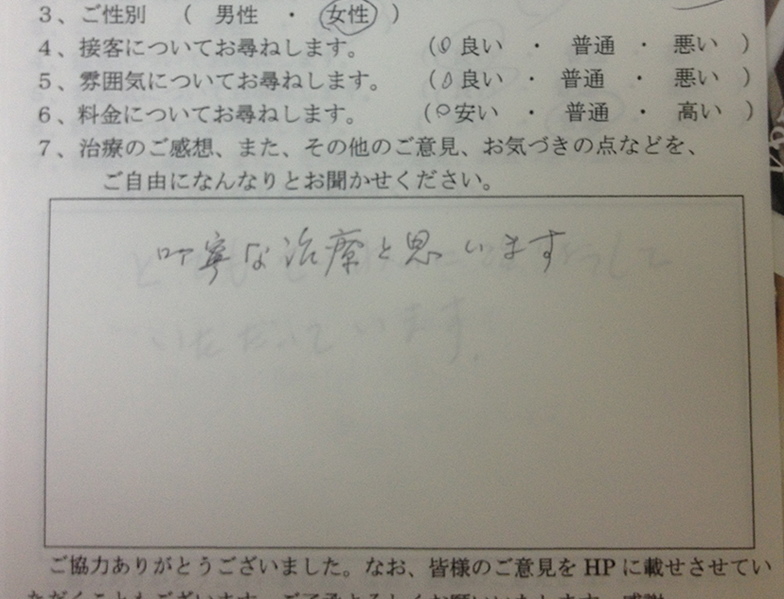 3、ご性別 ( 男性 ・ 女性 )
4、接客についてお尋ねします。 ( 良い ・ 普通 ・ 悪い )
5、雰囲気についてお尋ねします。 ( 良い ・ 普通 ・ 悪い )
6、料金についてお尋ねします。 ( 安い ・ 普通 ・ 高い )
7、治療のご感想、また、その他のご意見、お気づきの点などを、
ご自由になんなりとお聞かせください。
叮寧な治療と思います
いただいています。
ご協力ありがとうございました。なお、皆様のご意見を HP に載せさせてい
ただくこともございます。ご了承よろしくお願いいたします。感謝